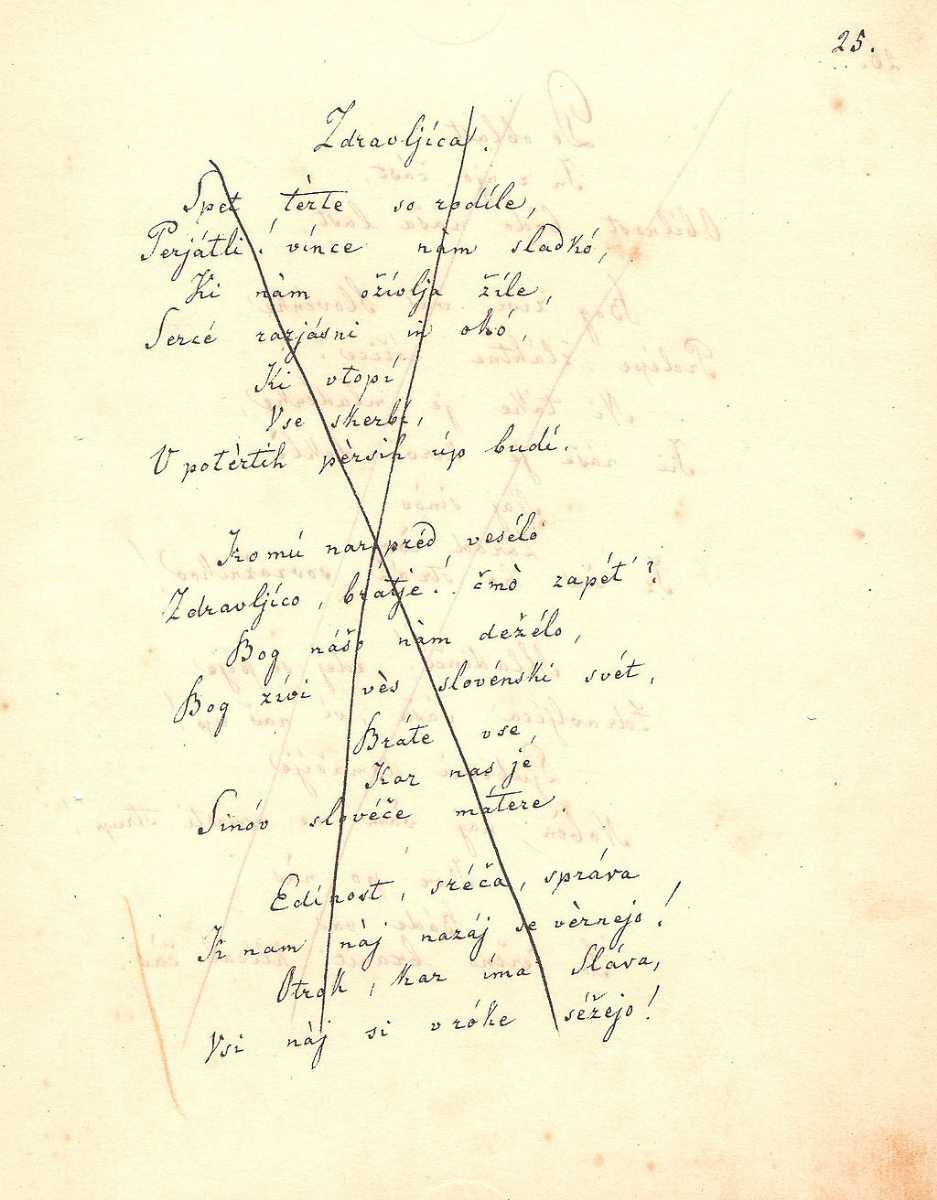 25.
Zdravljíca.
Spet tèrte so rodíle,
Perjátli! vínce nàm sladkó,
Ki nàm ožívlja žíle,
Sercé razjásni in okó,
Ki vtopí
Vse skerbí,
V potèrtih pèrsih úp budí.
Komú narpréd veséló
Zdravljíco, bratje! čmò zapét'?
Bog nášo nàm dežélo,
Bog žívi vès slovénski svét,
Bráte vse,
Kar nas jé
Sinóv slovéče mátere.
Edínost, sréča, správa
K nam nàj nazáj se vèrnejo!
Otrók, kar íma Sláva,
Vsi nàj si v róke séžejo!